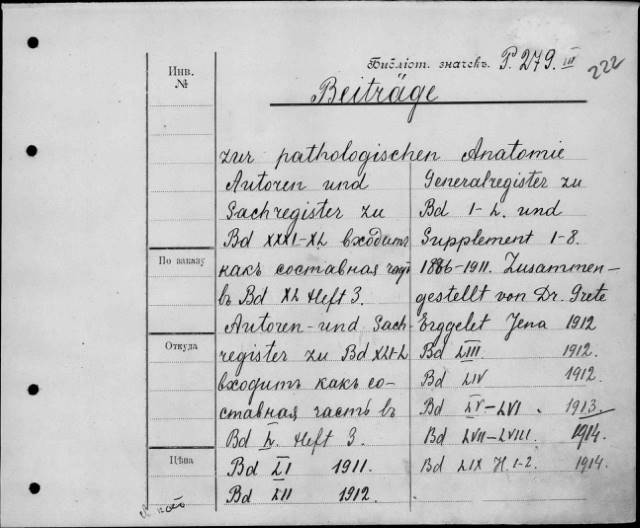 Библіот. значекъ. P. 279. III
222
Инв.
№
Beiträge
zur pathologischen Anatomie
Autoren und
Sachregister zu
Bd XXXI-XL входитъ
какъ составная часть
въ Bd XL Heft 3.
Autoren- und Sach-
register zu Bd XLI-L
входитъ какъ со-
ставная часть въ
Bd L. Heft 3.
Bd LI 1911.
Bd LII 1912.
Generalregister zu
Bd 1-L. und
Supplement 1-8.
1886-1911. Zusammen-
gestellt von Dr. Grete
Erggelet Jena 1912
Bd LIII. 1912.
Bd LIV 1912.
Bd LV-LVI. 1913.
Bd LVII-LVIII. 1914.
Bd LIX H. 1-2. 1914.
По заказу
Откуда
Цѣна